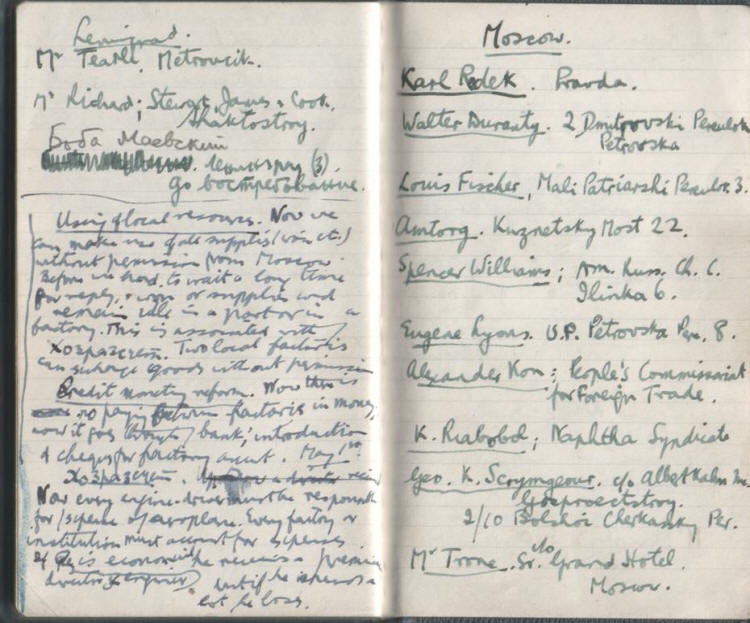 Leningrad.
Mr Tearle. Metrovick.
Mr Richard; Stewart, James & Cook.
Shaktostroy.
Боба Маевский
Ленинград (3).
До востребование.
Using of local resources. Now we
can make use of all supplies (iron etc)
without permission from Moscow.
Before we had to wait a long time
for reply, & iron or supplies wd
remain idle in a port or in a
factory. This is associated with
хозрасчет. Two local factories
can exchange goods without permission
Credit monetary reform. Now there is
no paying between factories in money,
now it goes through bank; introduction
of cheques for factory account. May 1st
хозрасчет.
Now every engine-driver must be responsible
for expense of aeroplane. Every factory or
institution must account for expenses.
If he is economical he receives a premium
but if he spends a
lot he loses.
Moscow.
Karl Radek. Pravda.
Walter Duranty. 2 Dmitrovski Pereulok
Petrovska
Louis Fischer, Mali Patriarshi Pereulok 3.
Amtorg. Kuznetsky Most 22.
Spencer Williams; Am. Russ. Ch. C.
Ilinka 6.
Eugene Lyons. U.P. Petrovska Per. 8.
Alexander Kon: People's Commissariat
for Foreign Trade.
K. Riabobol; Naphtha Syndicate
Geo. K. Scrymgeour. c/o Albert Kahn Inc.
Gosproectstroy.
2/10 Bolshoi Cherkassky Per.
Mr Trone. Sr. c/o Grand Hotel.
Moscow.